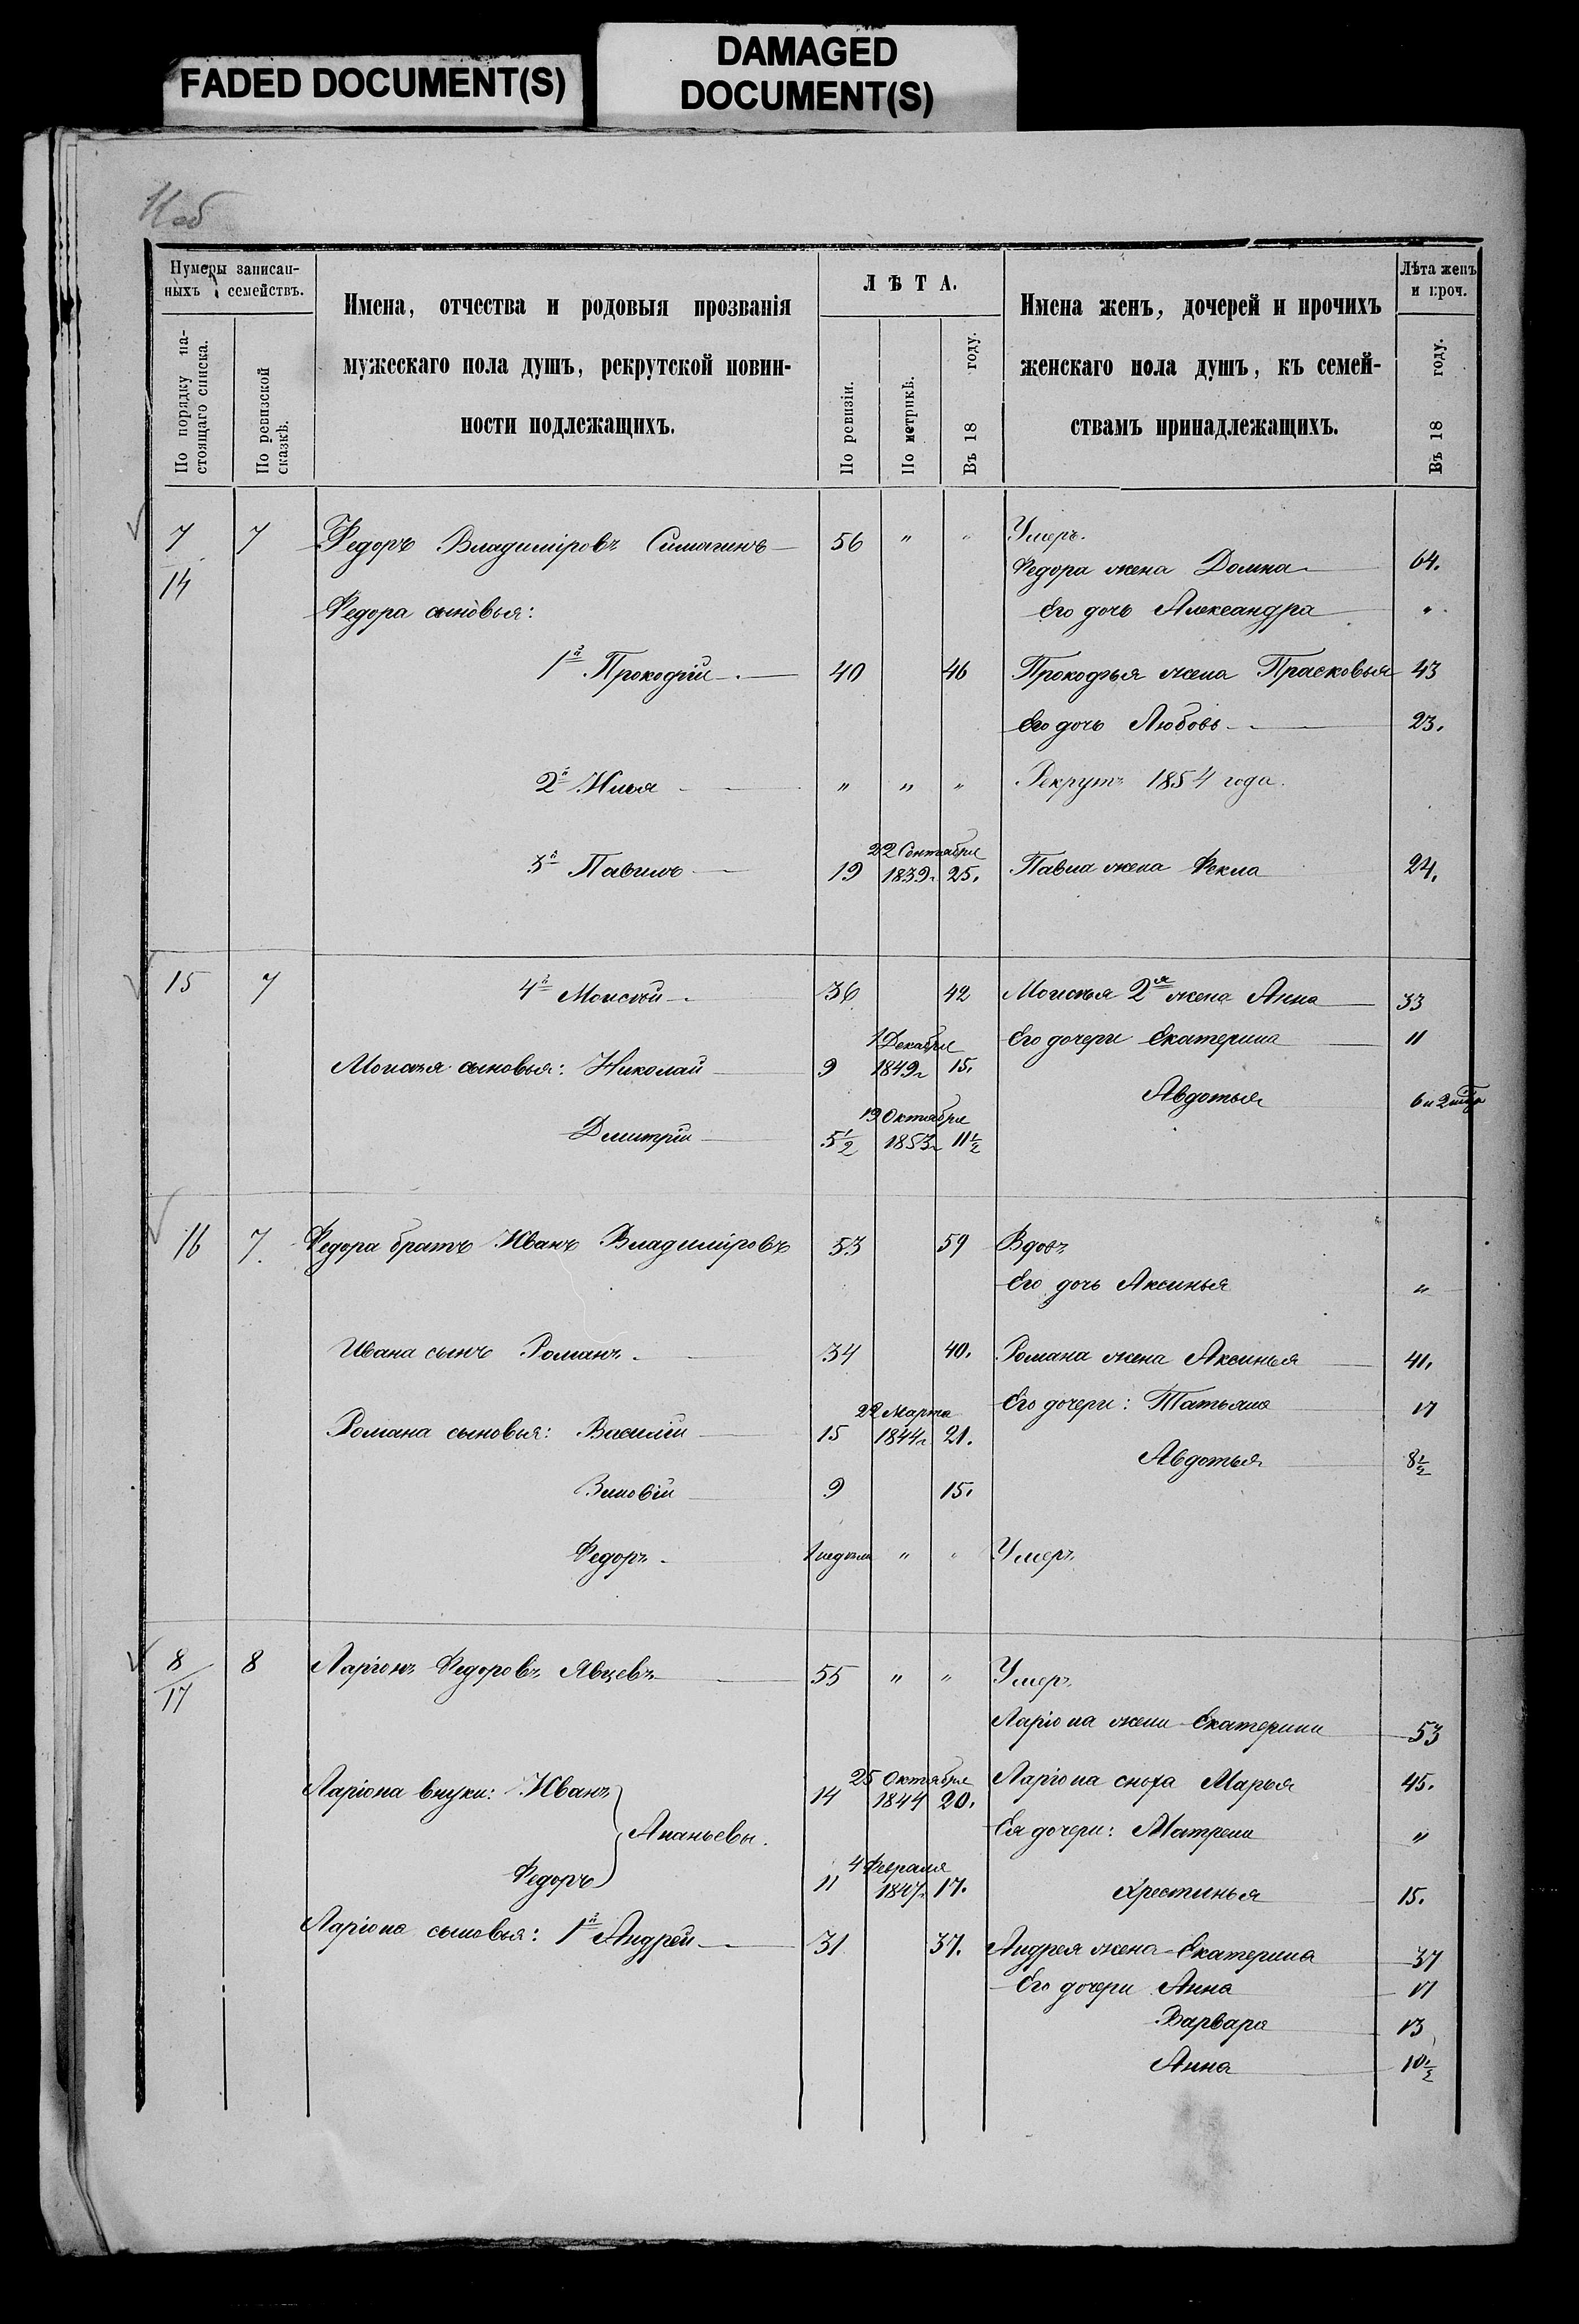 FADED DOCUMENT(S)
DAMAGED
DOCUMENT(S)
11об
Нумеры записан-
ныхъ семействъ.
По порядку на-
стоящаго списка.
По ревизской
сказкѣ.
Имена, отчества и родовыя прозванія
мужескаго пола душъ, рекрутской повин-
ности подлежащихъ.
ЛѢТА.
По ревизіи.
По метрикѣ.
Въ 18 году.
Имена женъ, дочерей и прочихъ
женскаго пола душъ, къ семей-
ствамъ принадлежащихъ.
Лѣта женъ
и проч.
Въ 18 году.
7 7 Федоръ Владиміровъ Симагинъ 56 " " Умеръ.
14 Федора жена Домна 64.
Федора сыновья: Его дочь Александра "
1й Прокофій 40 46 Прокофья жена Прасковья 43
Его дочь Любовь 23.
2й Илья " " " Рекрутъ 1854 года.
22 Сентября
3й Павилъ 19 1839г. 25. Павла жена Фекла 24.
15 7 4й Моисѣй 36 42 Моисѣя 2я жена Анна 33
1 Декабря Его дочери Екатерина 11
Моисѣя сыновья: Николай 9 1849г. 15.
Авдотья 6 и 2
19 Октября
Дмитрій 5½ 1853г. 11½
16 7. Федора братъ Иванъ Владиміровъ 53 59 Вдовъ
Его дочь Аксинья "
Ивана сынъ Романъ. 34 40. Романа жена Аксинья 41.
22 Марта Его дочери: Татьяна 17
Романа сыновья: Василій 15 1844г. 21.
Авдотья 8½
Зиновій 9 15.
Федоръ. 1 недѣли " " Умеръ.
8 8 Ларіонъ Федоровъ Явцевъ 55 " " Умеръ
17
Ларіона жена Екатерина 53
25 Октября
Ларіона внуки: Иванъ 14 1844 20. Ларіона сноха Марья 45.
Ананьевы. Ея дочери: Матрена "
4 Февраля
Федоръ 11 1847г. 17. Хрестинья 15.
Ларіона сыновья: 1й Андрей 31 37. Андрея жена Екатерина 37
Его дочери Анна 17
Варвара 13
Анна 10½